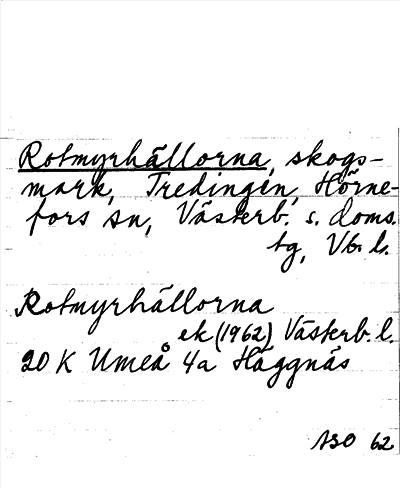 Rotmyrhällorna, skogs-
mark, Tredingen, Hörne-
fors sn, Västerb. s. doms.
tg, Vb. l.
Rotmyrhällorna
ek (1962) Västerb. l.
20 K Umeå 4a Häggnäs
ASO 62